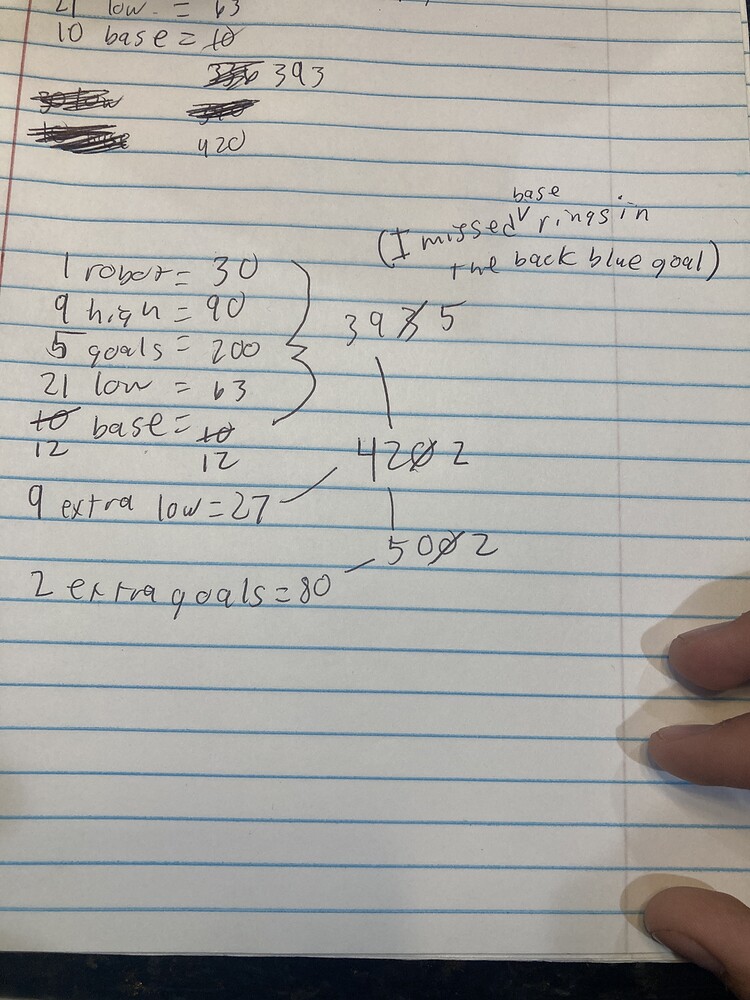 21 low = 63
10 base = 10
336 393
420
base
(I missed v rings in
the back blue goal)
1 robot = 30
9 high = 90
5 goals = 200
21 low = 63
10 base = 10
12 12
3933 5
4200 2
9 extra low = 27
500 2
2 extra goals = 80